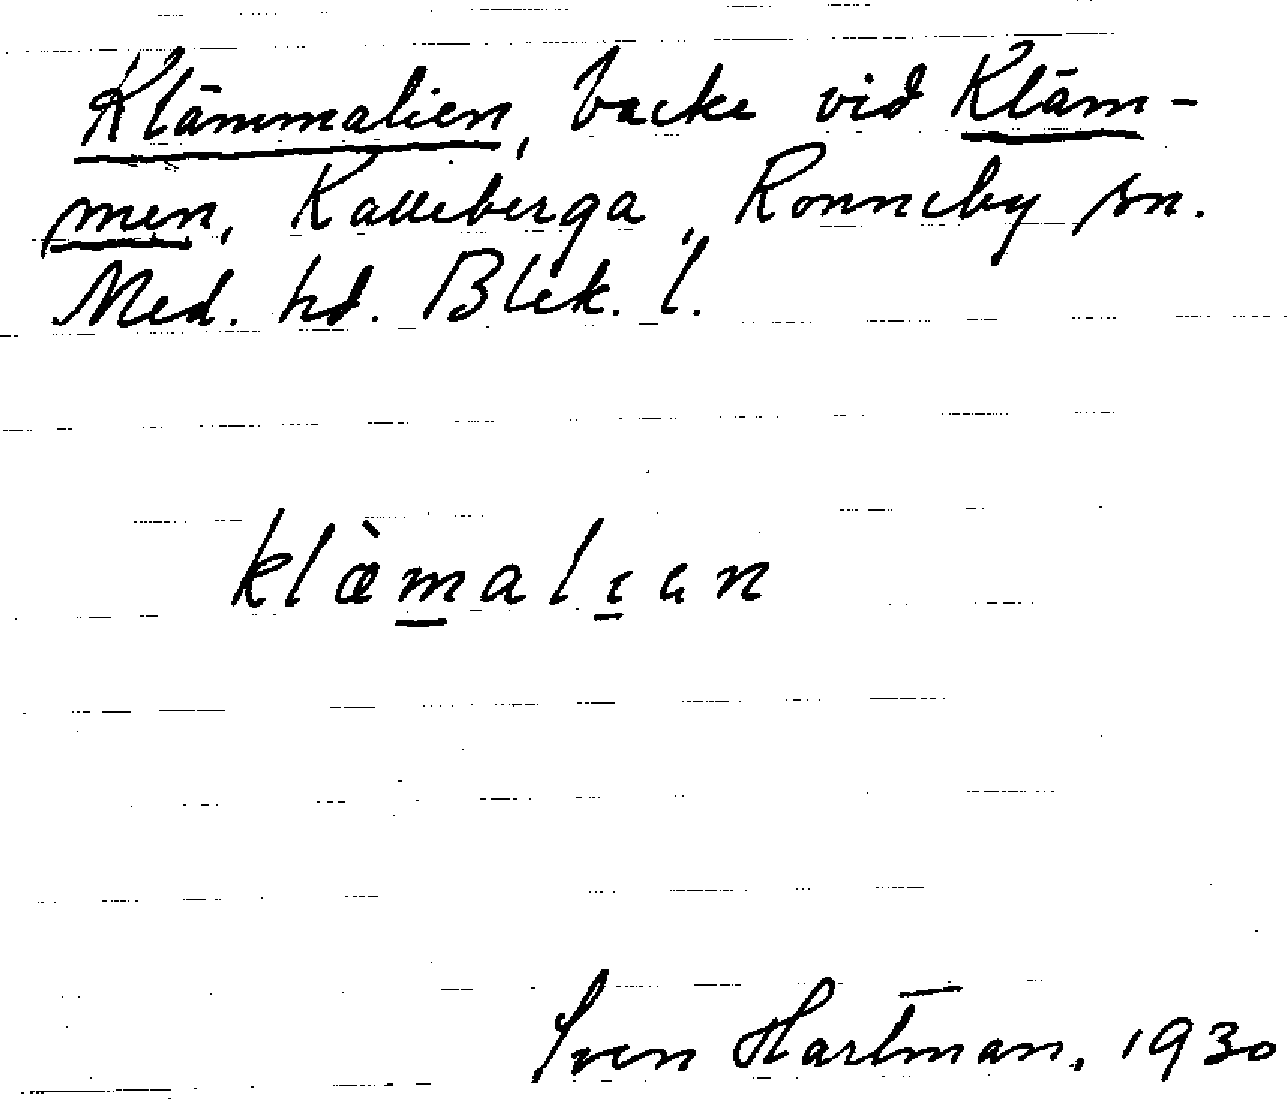 Klämmalien, backe vid Kläm-
men, Kalleberga, Ronneby sn.
Med. hd. Blek. l.
klæ̀m̲alɪ̲ən
Sven Hartman, 1930